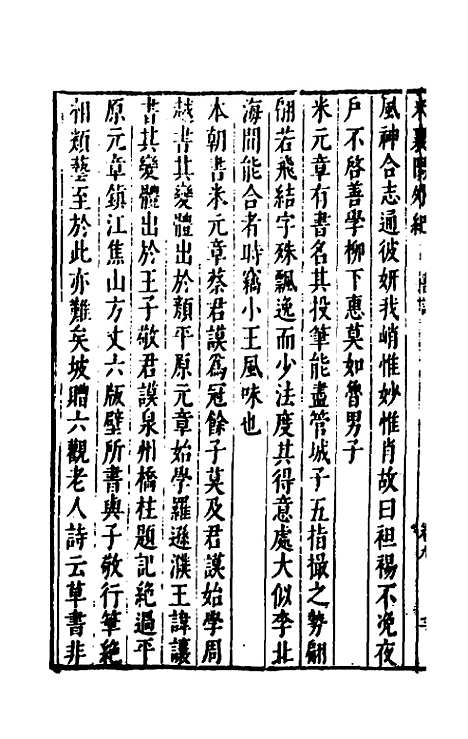 米襄陽外紀
風神合志通彼妍我峭惟妙惟肖故曰袒裼不浼夜
戶不啓善學柳下惠莫如魯男子
米元章有書名其投筆能盡管城子五指撮之勢翩
翩若飛結字殊飄逸而少法度其得意處大似李北
海間能合者時竊小王風味也
本朝書米元章蔡君謨爲冠餘子莫及君謨始學周
越書其變體出於顏平原元章始學羅遜濮王諱讓
書其變體出於王子敬君謨泉州橋柱題記絶過平
原元章鎮江焦山方丈六版壁所書與子敬行筆絶
相類藝至於此亦難矣坡贈六觀老人詩云草書非